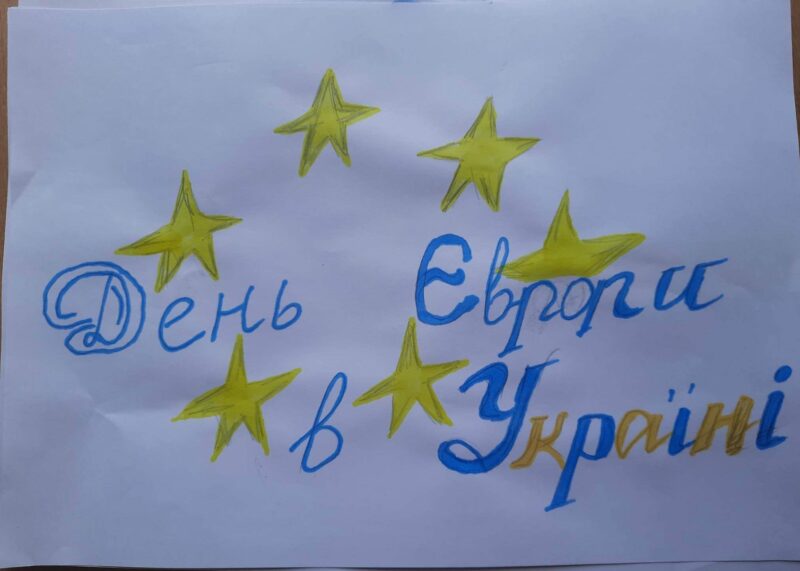 День Європи
в Україні